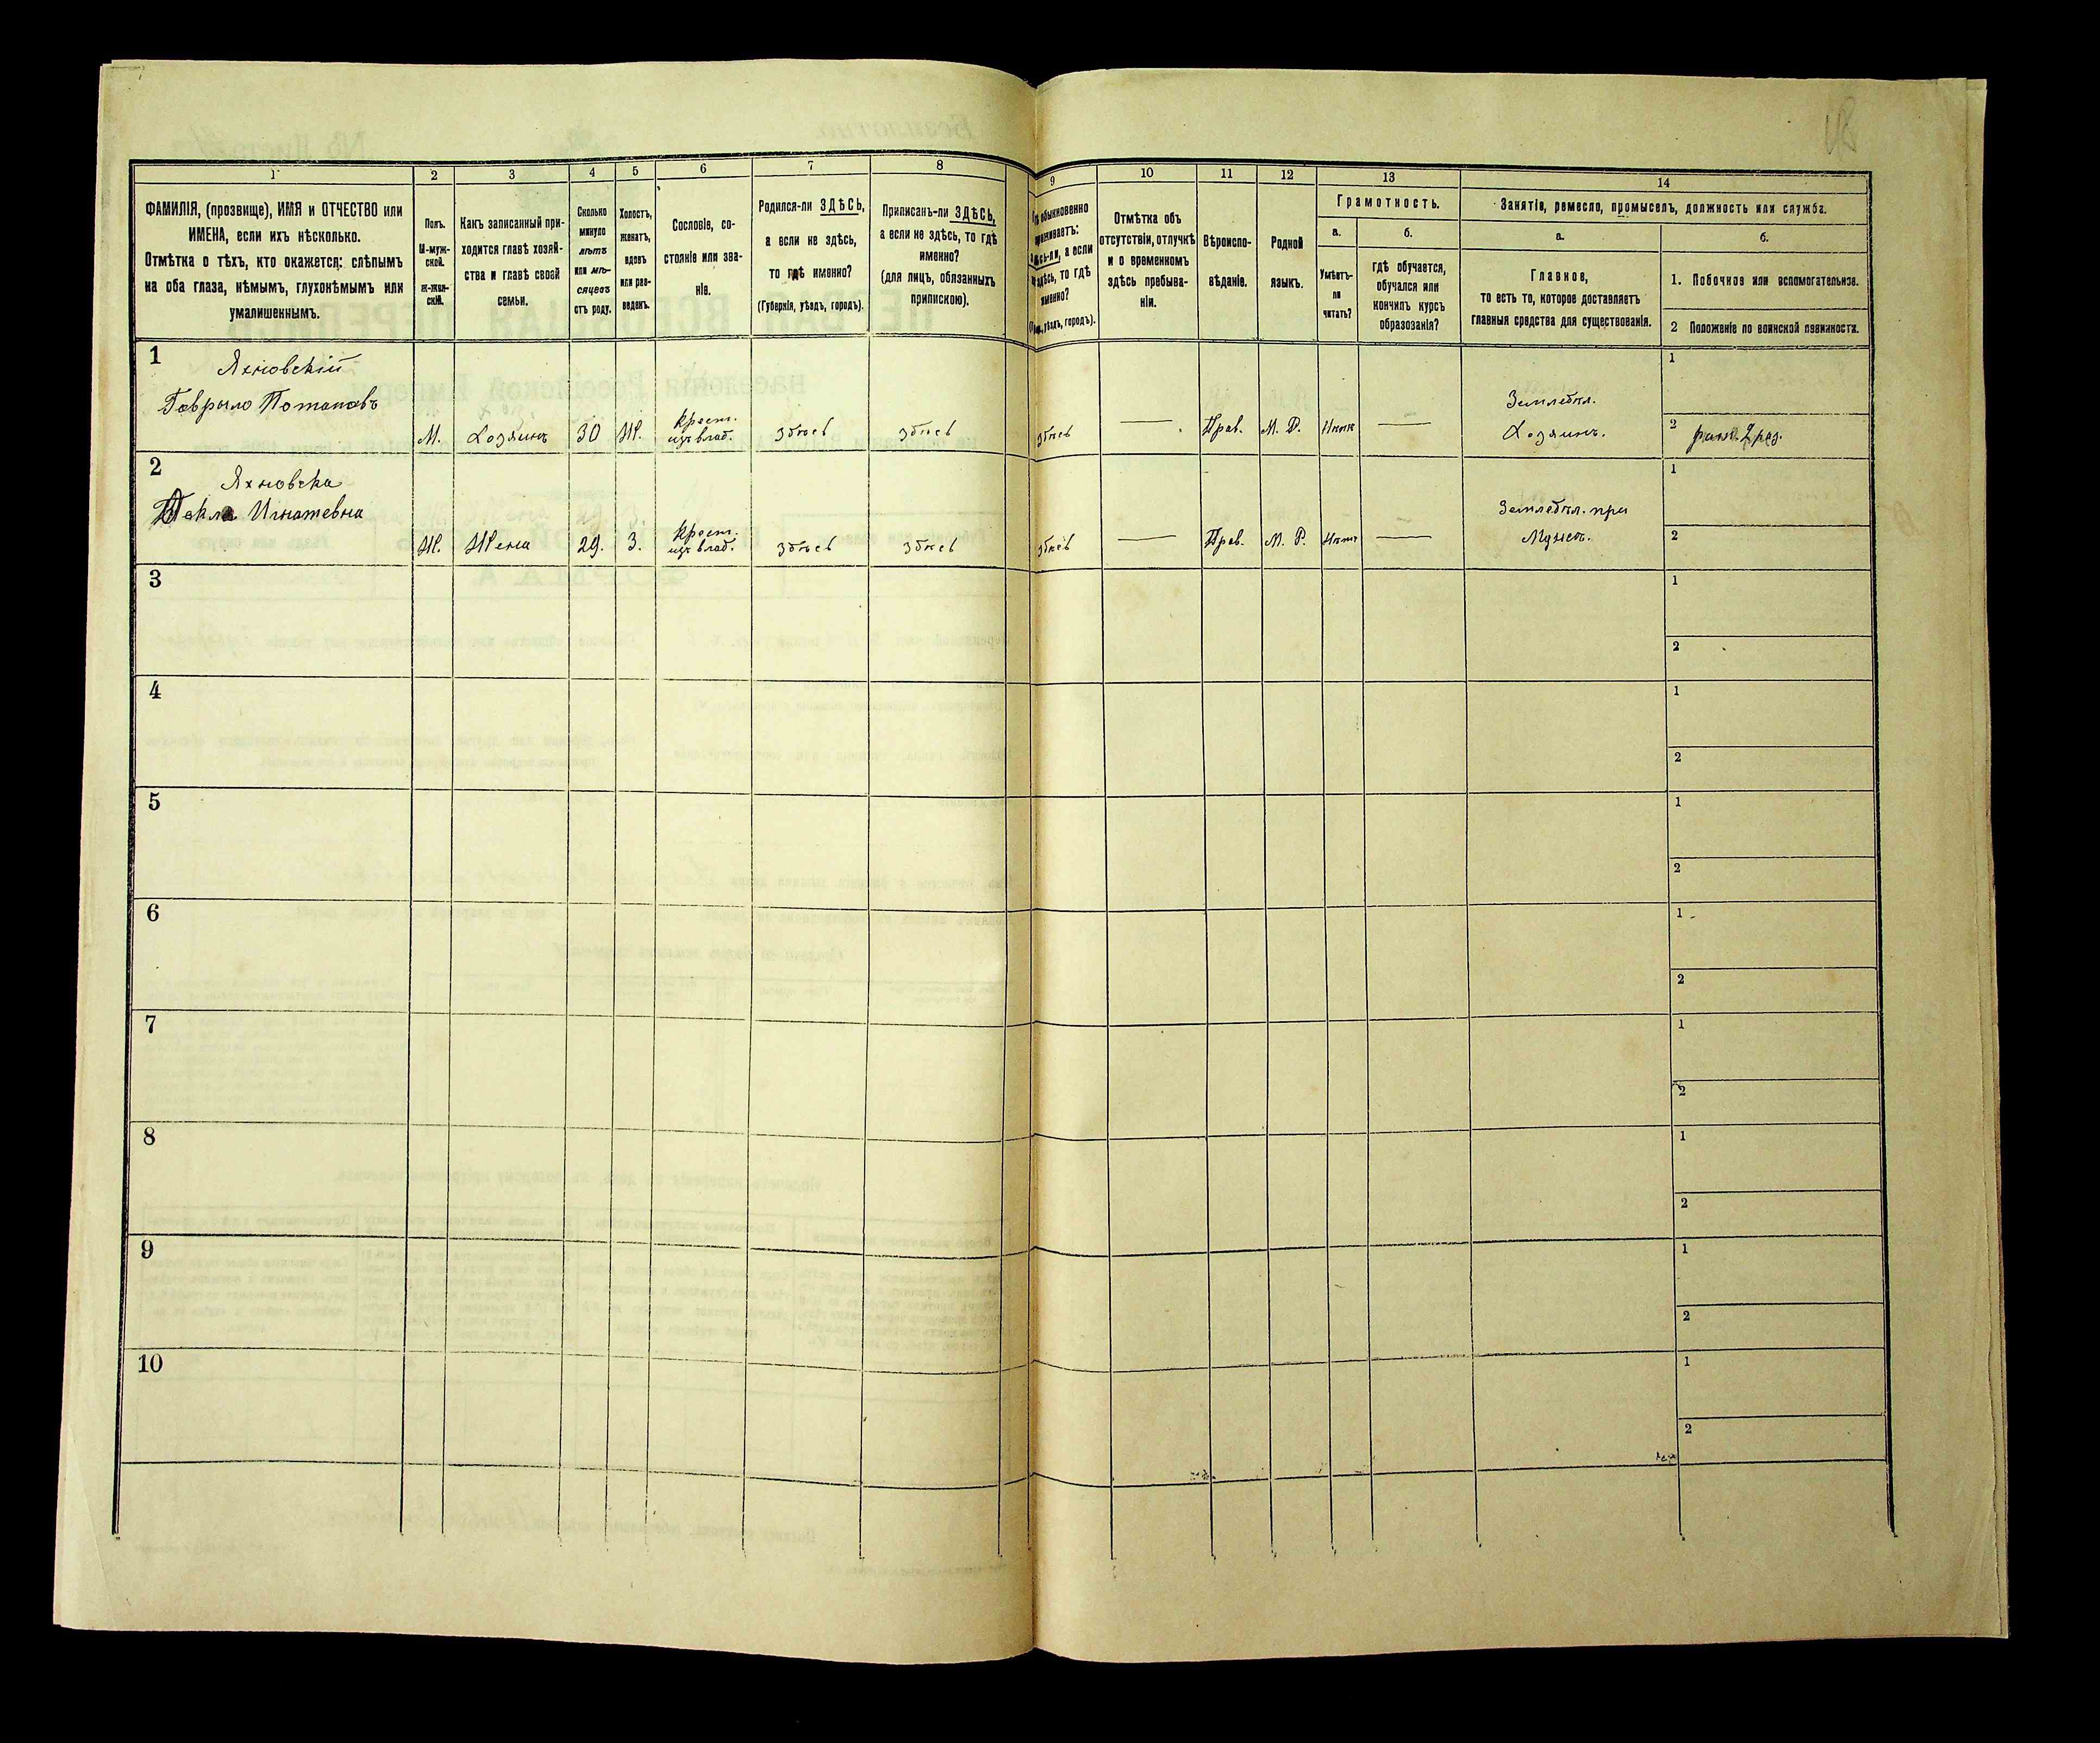 1 2 3 4 5 6 7 8 9 10 11 12 13 14
ФАМИЛІЯ, (прозвище), ИМЯ и ОТЧЕСТВО или
ИМЕНА, если ихъ нѣсколько.
Отмѣтка о тѣхъ, кто окажется: слѣпымъ
на оба глаза, нѣмымъ, глухонѣмымъ или
умалишеннымъ.
Полъ.
М-муж-
ской.
Ж-жен-
скій.
Какъ записанный при-
ходится главѣ хозяй-
ства и главѣ своей
семьи.
Сколько
минуло
лѣтъ
или мѣ-
сяцевъ
отъ роду.
Холостъ,
женатъ,
вдовъ
или раз-
веденъ.
Сословіе, со-
стояніе или зва-
ніе.
Родился-ли ЗДѢСЬ,
а если не здѣсь,
то гдѣ именно?
(Губернія, уѣздъ, городъ).
Приписанъ-ли ЗДѢСЬ,
а если не здѣсь, то гдѣ
именно?
(для лицъ, обязанныхъ
припискою).
обыкновенно
а если
здѣсь, то гдѣ
именно?
уѣздъ, городъ).
Отмѣтка объ
отсутствіи, отлучкѣ
и о временномъ
здѣсь пребыва-
ніи.
Вѣроиспо-
вѣданіе.
Родной
языкъ.
Грамотность.
а.
Умѣетъ-
ли
читать?
б.
гдѣ обучается,
обучался или
кончилъ курсъ
образованія?
Занятіе, ремесло, промыселъ, должность или служба.
а.
Главное,
то есть то, которое доставляетъ
главныя средства для существованія.
б.
1. Побочное или вспомогательное.
2 Положеніе по воинской повинности.
1
Яхновскій
Гаврыло Потаповъ
М. Хозяинъ 30 Ж. Крест. изъ влад. здѣсь здѣсь здѣсь — Прав. М. Р. Нѣтъ —
Земледѣл.
Хозяинъ.
1
2
2
Яхновска
Текла Игнатевна
Ж. Жена 29. З. Крест. изъ влад. здѣсь здѣсь здѣсь — Прав. М. Р. Нѣтъ —
Земледѣл. при
Мужѣ.
1
2
3
1
2
4
1
2
5
1
2
6
1
2
7
1
2
8
1
2
9
1
2
10
1
2